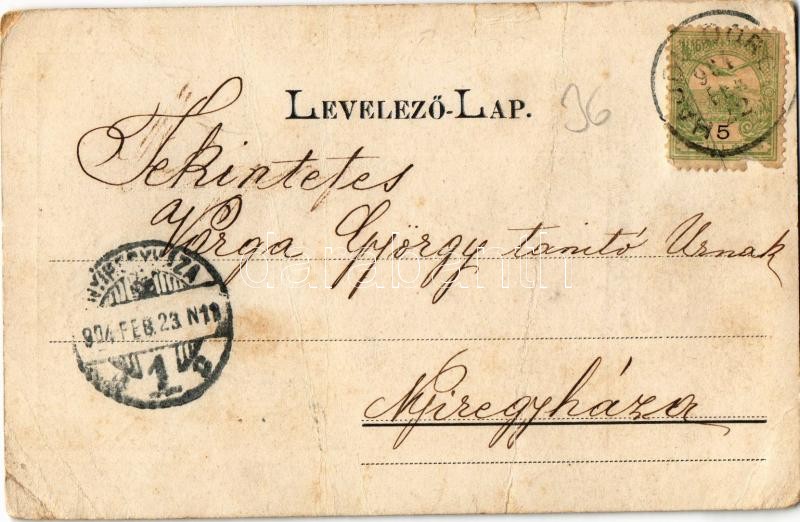 LEVELEZŐ-LAP.
36
Tekintetes
Varga György tanító Urnak
Nyiregyháza
NYIREGYHÁZA
904 FEB. 23. N11
1
5
darabanth